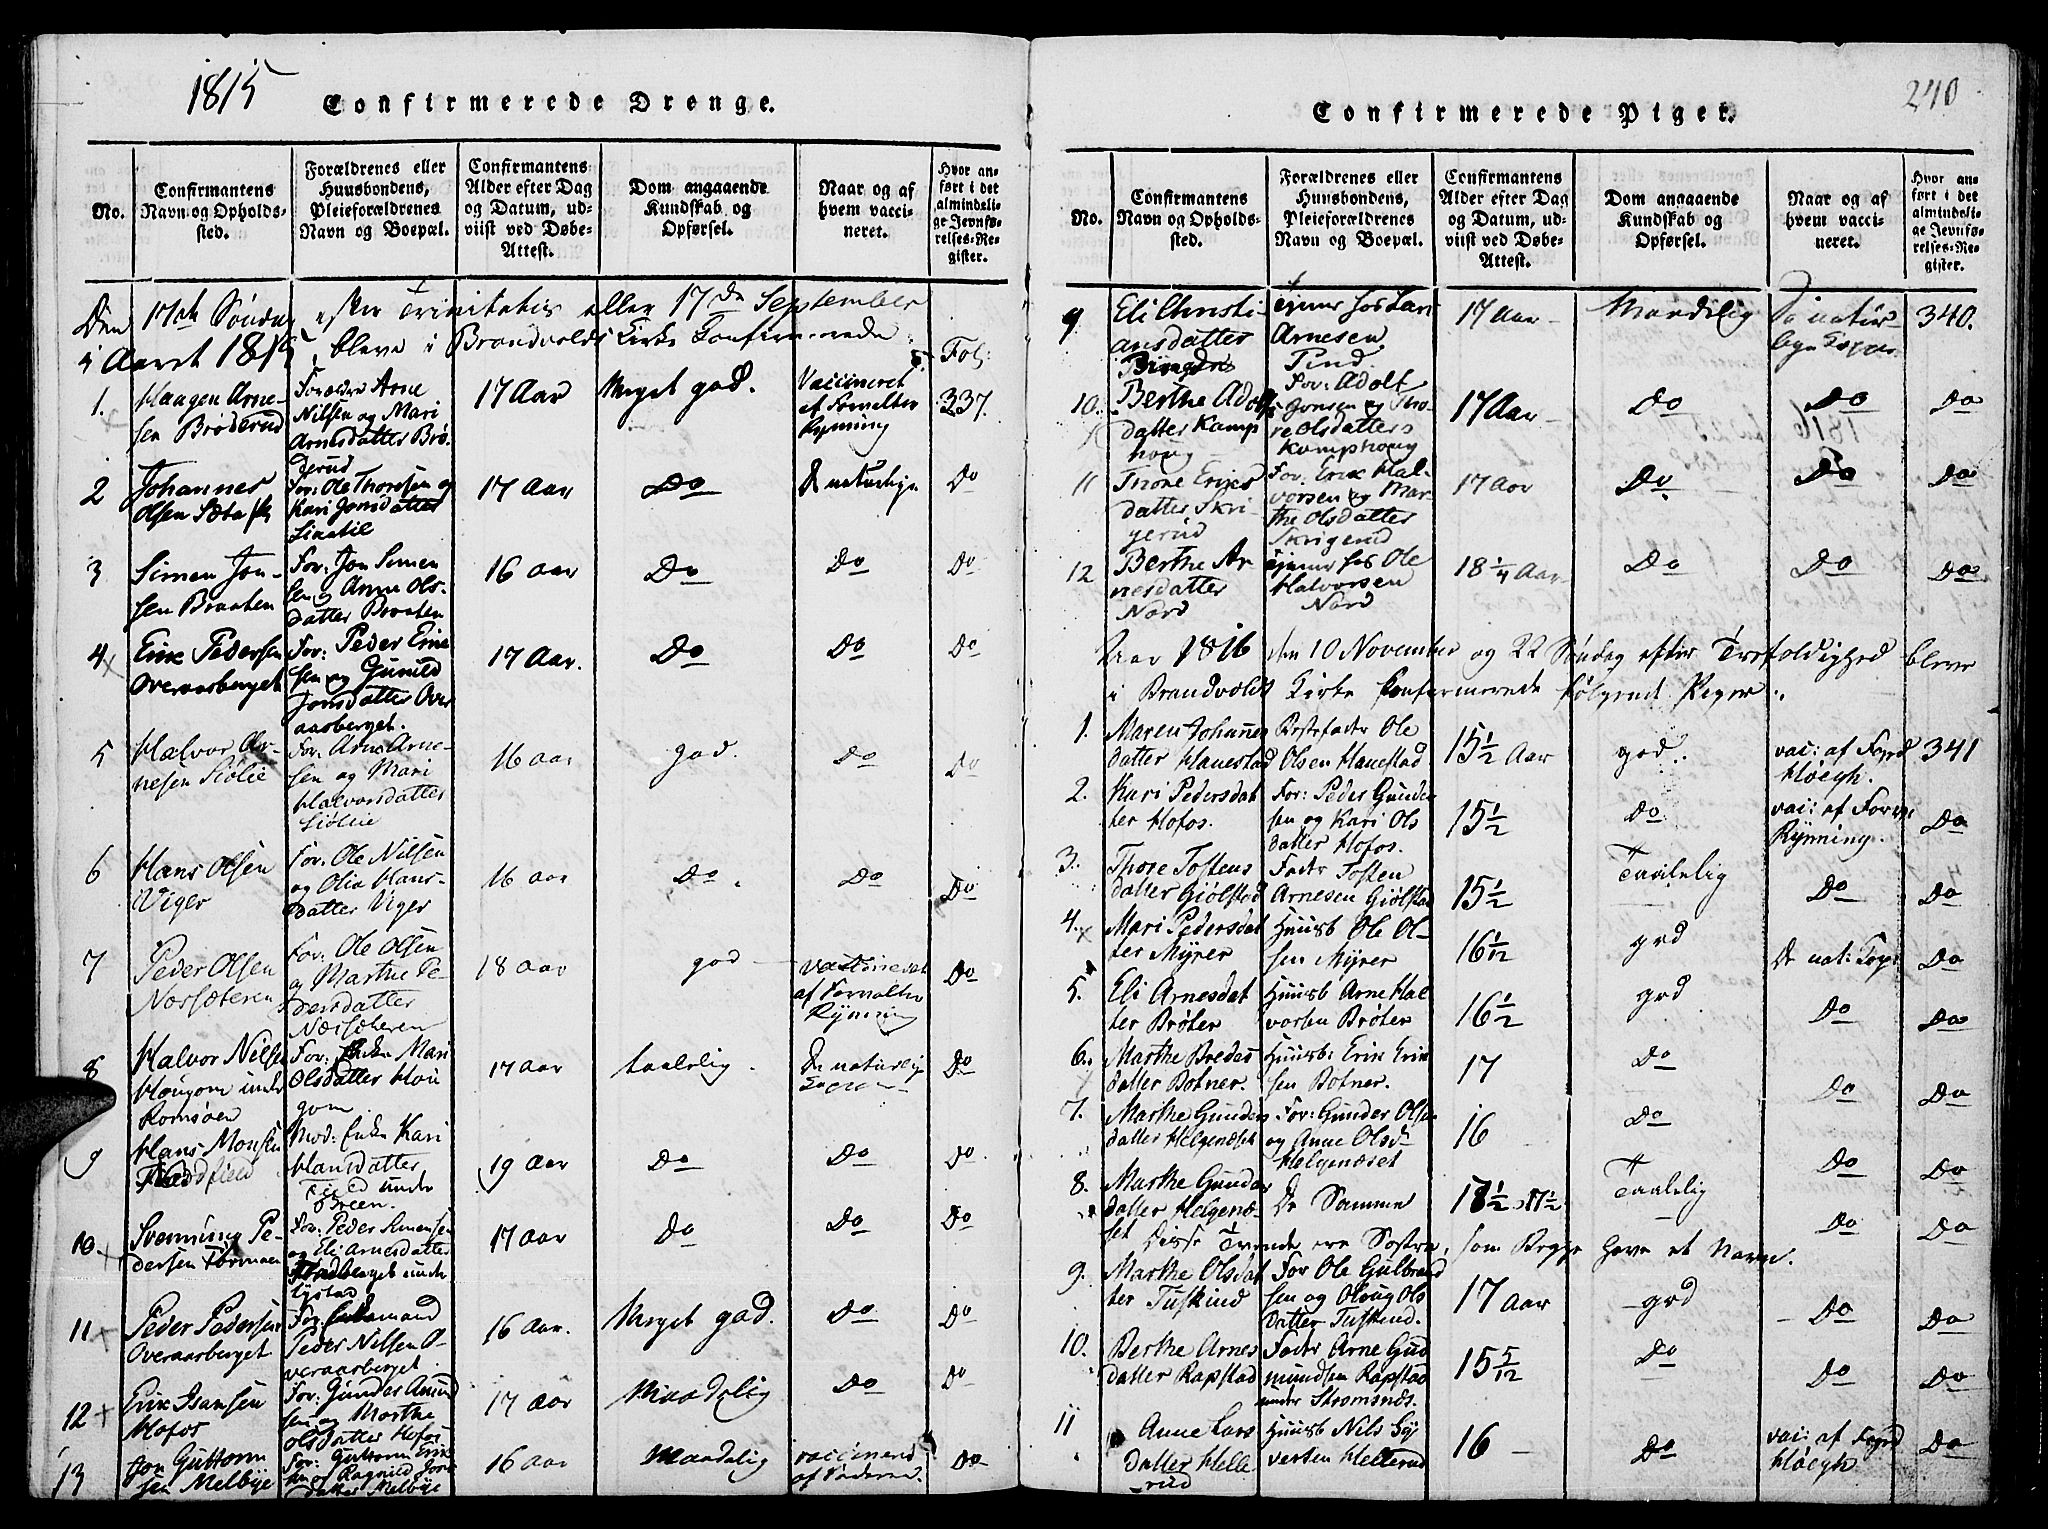 1815
Confirmerede Drenge.
No.
Confirmantens Navn og Opholds-sted.
Forældrenes eller Huusbondens, Pleieforældrenes Navn og Boepæl.
Confirmantens Alder efter Dag og Datum, ud-viist ved Døbe-Attest.
Dom angaaende Kundskab og Opførsel.
Naar og af hvem vacci-neret.
Hvor an-ført i det almindeli-ge Jevnfø-relses-Re-gister.
Den 17de Søndag efter Trinitatis eller 17de September
i Aaret 1815, bleve i Brandvolds Kirke Confirmerede
Fol:
1. Haagen Arne-sen Brøderud
Forældre Arne Nilsen og Mari Arnesdatter Brø-derud
17 Aar
Meget god.
Vaccineret af Forvalter Rynning
337.
2 Johannes Olsen
For: Ole Thorsen og Kari Jonsdatter
17 Aar
Do
De naturlige
Do
3 Simen Jon-sen Braaten
For: Jon Simen-sen og Anne Ols-datter Braaten
16 aar
Do
Do
Do
4 Erik Pedersen Overaasberget
For: Peder Erik-sen og Gunild Jonsdatter Over-aasberget.
17 Aar.
Do
Do
Do
5 Halvor Ar-nesen Siølie
For: Arne Arne-sen og Mari Halvorsdatter Siølie
16 aar
god.
Do
Do
6 Hans Olsen Viger
For: Ole Nilsen og Olia Hans-datter Viger
16 aar
Do.
Do
Do
7 Peder Olsen Norsæteren
For: Ole Olsen og Marthe Pe-dersdatter Norsæteren
18 aar
god
vaccineret af Forvalter Rynning
Do
8 Halvor Nilsen Hougom under Romsøen
For: Enke Mari Olsdatter Hou-gom
17 aar
taalelig.
De naturlige
Do
9 Hans Monsen
Mod: Enke Kari Hansdatter under Breen.
19 aar
Do
Do
Do
10. Svenning Pe-dersen
For: Peder Simensen og Eli Arnesdatter under Lystad
17 aar
Do
Do
Do
11 Peder Pedersen Overaasberget
For: Enkemand Peder Nilsen O-veraasberget
16 Aar.
Meget god.
Do
Do
12 Erik Hofos
For: Gunder Amund-sen og Marthe Olsdatter Hofos
17 aar
Maadelig
Do
Do
13 Jon Guttorm-sen Melbye
For: Guttorm Erik-sen og Ragnild Jons-datter Melbye
16 aar
Maadelig
vaccinered
Do
240
Confirmerede Piger.
No.
Confirmantens Navn og Opholds-sted.
Forældrenes eller Huusbondens, Pleieforældrenes Navn og Boepæl.
Confirmantens Alder efter Dag og Datum, ud-viist ved Døbe-Attest.
Dom angaaende Kundskab og Opførsel.
Naar og af hvem vacci-neret.
Hvor an-ført i det almindeli-ge Jevnfø-relses-Re-gister.
9 Eli Christi-ansdatter
tjener hos Lars Arnesen
17 Aar
Maadelig
De natur-lige Kopper
340.
10. Berthe Adolfs datter Kamp-houg
For: Adolf Jonsen og Tho-re Olsdatter Kamphoug
17 Aar
Do
Do
Do
11 Thore Eriks datter Skri-gerud
For: Erik Hal-vorsen og Mar-the Olsdatter Skrigerud
17 aar
Do
Do
Do
12 Berthe Ar-nesdatter Nord
tjener hos Ole Halvorsen Nord
18 1/4 Aar
Do
Do
Do
Aar 1816 den 10 November og 22 Søndag efter Trefoldighed bleve
i Brandvolds Kirke Confirmerede følgende Piger.
1. Maren Johannes datter Hanestad
Bestefader Ole Olsen Hanestad
15 1/2 Aar
god.
vac: af Høegh.
341
2. Kari Pedersdat ter Hofos.
For: Peder Gunder sen og Kari Ols datter Hofos.
15 1/2
Do
vac: af Forv: Rynning.
Do
3. Thore Tostens datter Giølstad
Fader Tosten Arnesen Giølstad
15 1/2
Taalelig
Do
Do
4. Mari Pedersdat ter Myrer
Huusb Ole Ol-sen Myrer
16 1/12
god
De nat: Kop
Do
5. Eli Arnesdat ter Brøter
Huusb Arne Hal vorsen Brøter
16 1/2
god
Do
Do
6. Marthe Bredes datter Botner.
Huusb: Erik Erik sen Botner.
17
Do
Do
Do
7. Marthe Gunders datter Helgenæset
For: Gunder Olsen og Anne Olsd- Helgenæset
16
Do
Do
Do
8. Marthe Gunders datter Helgenæ-set
De Samme
18 1/2
Taalelig
Do
Do
Disse Tvende ere Søstre, som Begge have et Navn.
9. Marthe Olsdat ter Tuskind
For Ole Gulbrand sen og Oloug Ols datter Tuskind.
17 Aar
god
Do
Do
10. Berthe Arnes datter Rapstad
Fader Arne Gud mundsen Rapstad under Strømsnæs.
15 5/12
Do
Do
Do
11 Anne Lars datter Helle-rud
Huusb Nils Sy versen Hellerud
16
Do
vac: af Høegh
Do